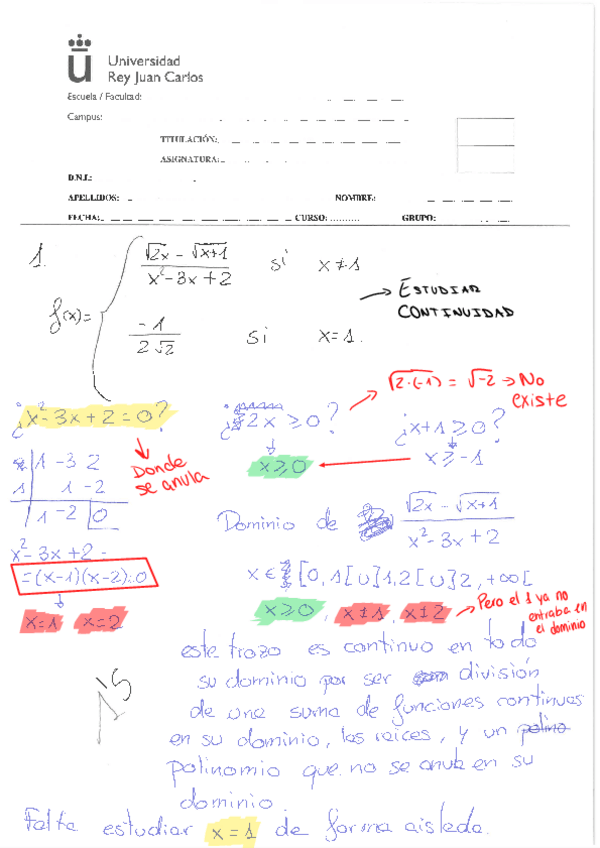 Universidad
Rey Juan Carlos
Escuela / Facultad:
Campus:
TITULACIÓN:
ASIGNATURA:
D.N.I.:
APELLIDOS: NOMBRE:
FECHA: CURSO: .......... GRUPO:
1.
f(x)=
√2x - √x+1 / x²-3x+2 si x≠1
-1 / 2√2 si x=1.
→ ESTUDIAR
CONTINUIDAD
√2·(-1) = √-2 → No
existe
¿x²-3x+2=0?
¿2x ≥0?
¿x+1≥0?
Donde
se anula
x≥0
x≥-1
1 -3 2
1 1 -2
1 -2 0
x²-3x+2=
=(x-1)(x-2)=0
x=1 x=2
Dominio de √2x - √x+1 / x²-3x+2
x∈ [0,1[ U ]1,2[ U ]2,+∞[
x≥0, x≠1, x≠2
→ Pero el 1 ya no
entraba en
el dominio
este trozo es continuo en todo
su dominio por ser división
de una suma de funciones continuas
en su dominio, las raíces, y un
polinomio que no se anula en su
dominio.
1'5
Falta estudiar x=1 de forma aislada.